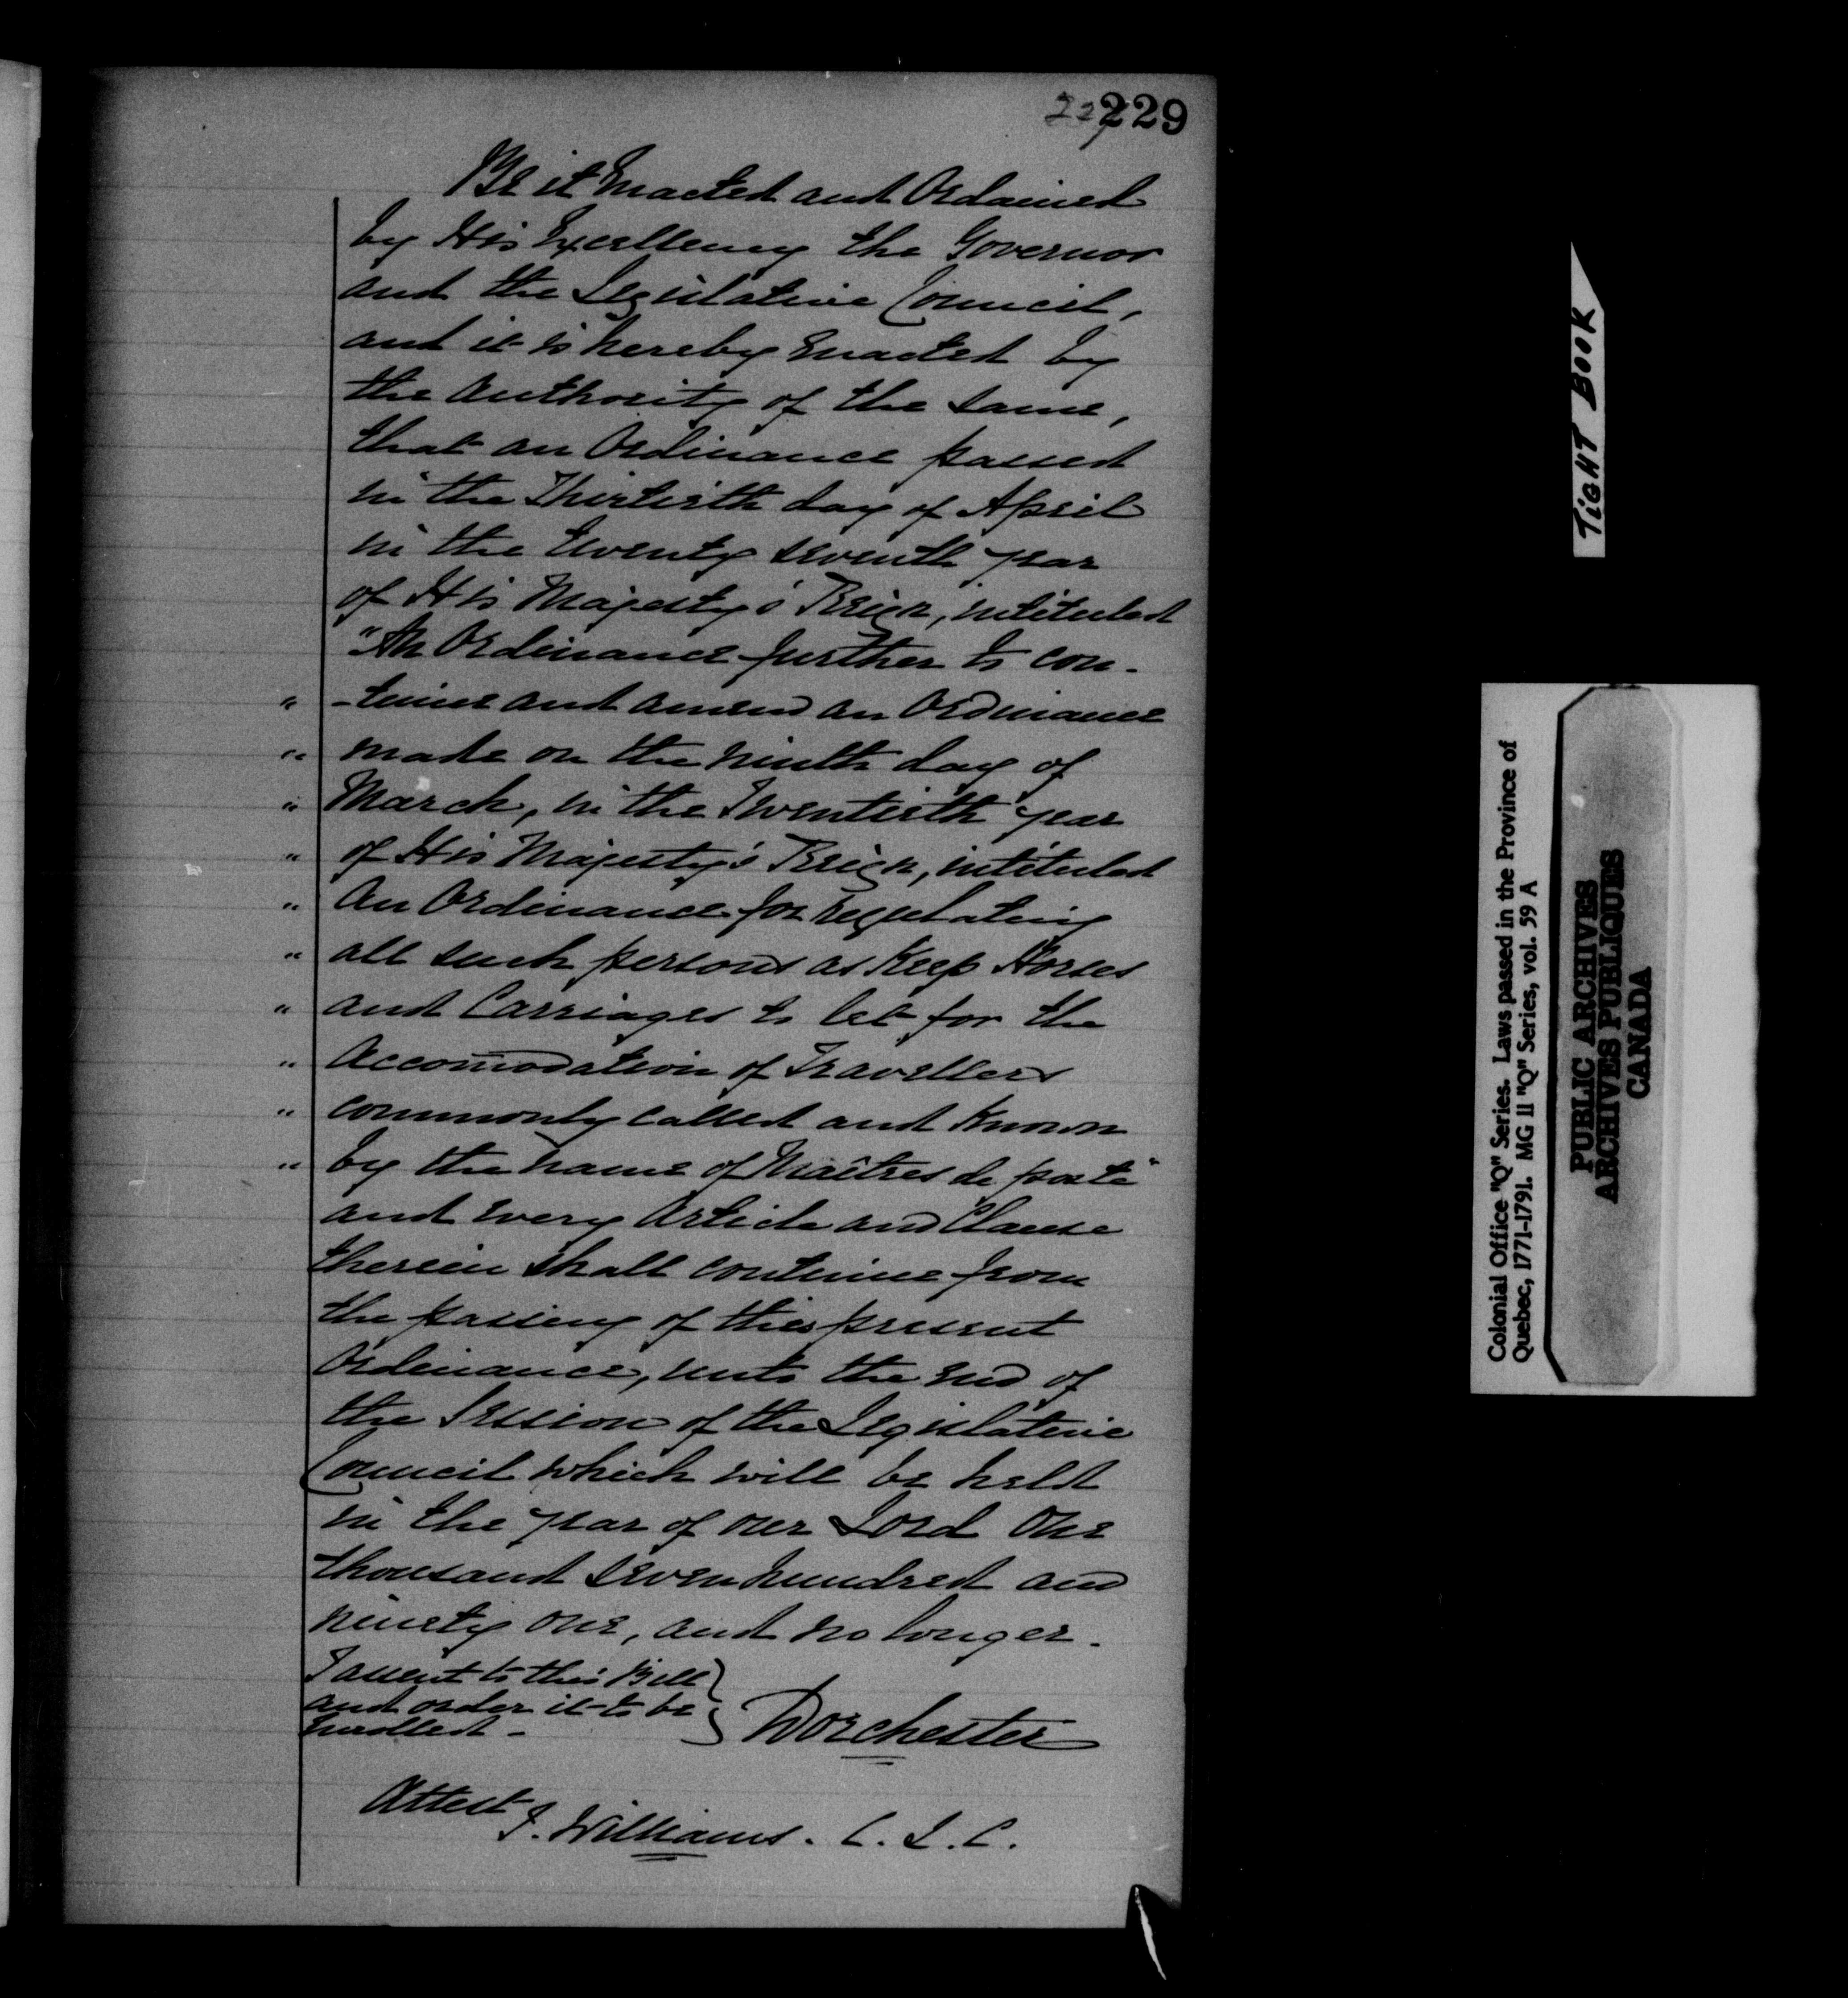 229
Be it Enacted and Ordained
by His Excellency the Governor
and the Legislative Council,
and it is hereby Enacted by
the Authority of the same,
that an Ordinance passed
in the Thirtieth day of April
in the twenty seventh year
of His Majesty's Reign, intituled
"An Ordinance further to con-
" -tinue and amend an Ordinance
" made on the ninth day of
" March, in the Twentieth year
" of His Majesty's Reign, intituled
" An Ordinance for regulating
" all such persons as Keep Horses
" and Carriages to let for the
" Accomodation of Travellers
" commonly called and Known
" by the name of Maîtres de poste"
and every Article and Clause
therein shall continue from
the passing of this present
Ordinance, unto the end of
the Session of the Legislative
Council which will be held
in the year of our Lord One
thousand seven hundred and
ninety one, and no longer.
I assent to this Bill
and order it to be
Enrolled -
} Dorchester
Attest
J. Williams. C. L. C.
TIGHT BOOK
Colonial Office "Q" Series. Laws passed in the Province of
Quebec, 1771-1791. MG 11 "Q" Series, vol. 59 A
PUBLIC ARCHIVES
ARCHIVES PUBLIQUES
CANADA